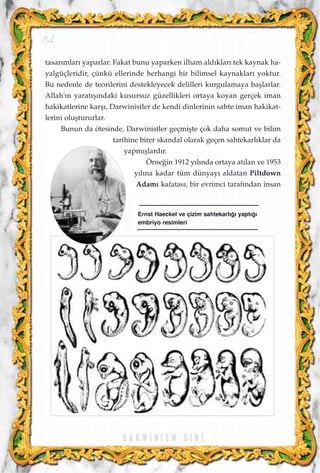 tasarımları yaparlar. Fakat bunu yaparken ilham aldıkları tek kaynak ha-
yalgüçleridir, çünkü ellerinde herhangi bir bilimsel kaynakları yoktur.
Bu nedenle de teorilerini destekleyecek delilleri kurgulamaya başlarlar.
Allah'ın yaratışındaki kusursuz güzellikleri ortaya koyan gerçek iman
hakikatlerine karşı, Darwinistler de kendi dinlerinin sahte iman hakikat-
lerini oluştururlar.
Bunun da ötesinde, Darwinistler geçmişte çok daha somut ve bilim
tarihine birer skandal olarak geçen sahtekarlıklar da
yapmışlardır.
Örneğin 1912 yılında ortaya atılan ve 1953
yılına kadar tüm dünyayı aldatan Piltdown
Adamı kafatası, bir evrimci tarafından insan
Ernst Haeckel ve çizim sahtekarlığı yaptığı
embriyo resimleri
DARWINIZM DINI